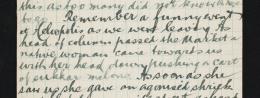 this as too many did not know how
Remember a funny event
of Heliopolis as we went leaving. As
head of column passed the Market a
native woman came towards us
with her head down, pushing a cart
of sukkar melons. As soon as she
saw us she gave an agonised shriek